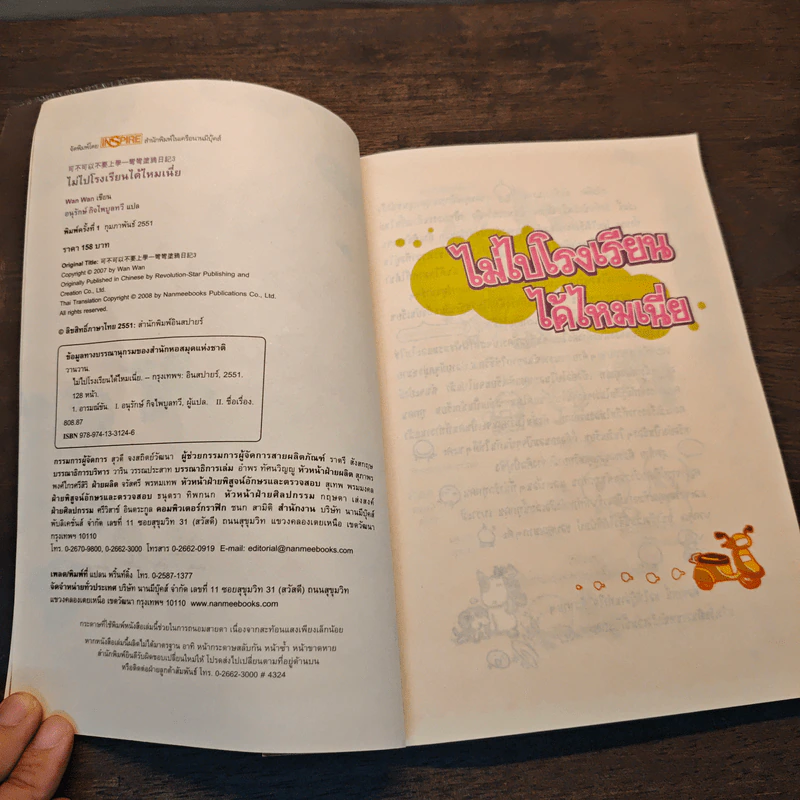 จัดพิมพ์โดย INSPIRE สำนักพิมพ์ในเครือนานมีบุ๊คส์
可不可以不要上學一彎彎塗鴉日記3
ไม่ไปโรงเรียนได้ไหมเนี่ย
Wan Wan เขียน
อนุรักษ์ กิจไพบูลทวี แปล
พิมพ์ครั้งที่ 1 กุมภาพันธ์ 2551
ราคา 158 บาท
Original Title: 可不可以不要上學一彎彎塗鴉日記3
Copyright © 2007 by Wan Wan
Originally Published in Chinese by Revolution-Star Publishing and
Creation Co., Ltd.
Thai Translation Copyright © 2008 by Nanmeebooks Publications Co., Ltd.
All rights reserved.
© ลิขสิทธิ์ภาษาไทย 2551: สำนักพิมพ์อินสปายร์
ข้อมูลทางบรรณานุกรมของสำนักหอสมุดแห่งชาติ
วานวาน.
ไม่ไปโรงเรียนได้ไหมเนี่ย. – กรุงเทพฯ: อินสปายร์, 2551.
128 หน้า.
1. อารมณ์ขัน. I. อนุรักษ์ กิจไพบูลทวี, ผู้แปล. II. ชื่อเรื่อง.
808.87
ISBN 978-974-13-3124-6
กรรมการผู้จัดการ สุวดี จงสถิตย์วัฒนา ผู้ช่วยกรรมการผู้จัดการสายผลิตภัณฑ์ ราตรี สังสกฤษ
บรรณาธิการบริหาร วาริน วรรณประสาท บรรณาธิการเล่ม อำพร ทัศนวิญญู หัวหน้าฝ่ายผลิต สุภาพร
พงศ์ไกรศรีสิริ ฝ่ายผลิต จรัสศรี พรหมเทพ หัวหน้าฝ่ายพิสูจน์อักษรและตรวจสอบ สุเทพ พรมมงคล
ฝ่ายพิสูจน์อักษรและตรวจสอบ ธนุตรา ทิพกนก หัวหน้าฝ่ายศิลปกรรม กฤษดา เส่งสงค์
ฝ่ายศิลปกรรม ศรีวิสาข์ อินตระกูล คอมพิวเตอร์กราฟิก ชนก สามิติ สำนักงาน บริษัท นานมีบุ๊คส์
พับลิเคชั่นส์ จำกัด เลขที่ 11 ซอยสุขุมวิท 31 (สวัสดี) ถนนสุขุมวิท แขวงคลองเตยเหนือ เขตวัฒนา
กรุงเทพฯ 10110
โทร. 0-2670-9800, 0-2662-3000 โทรสาร 0-2662-0919 E-mail: editorial@nanmeebooks.com
เพลต/พิมพ์ที่ แปลน พริ้นท์ติ้ง โทร. 0-2587-1377
จัดจำหน่ายทั่วประเทศ บริษัท นานมีบุ๊คส์ จำกัด เลขที่ 11 ซอยสุขุมวิท 31 (สวัสดี) ถนนสุขุมวิท
แขวงคลองเตยเหนือ เขตวัฒนา กรุงเทพฯ 10110 www.nanmeebooks.com
กระดาษที่ใช้พิมพ์หนังสือเล่มนี้ช่วยในการถนอมสายตา เนื่องจากสะท้อนแสงเพียงเล็กน้อย
หากหนังสือเล่มนี้ผลิตไม่ได้มาตรฐาน อาทิ หน้ากระดาษสลับกัน หน้าซ้ำ หน้าขาดหาย
สำนักพิมพ์ยินดีรับผิดชอบเปลี่ยนใหม่ให้ โปรดส่งไปเปลี่ยนตามที่อยู่ด้านบน
หรือติดต่อฝ่ายลูกค้าสัมพันธ์ โทร. 0-2662-3000 # 4324
ไม่ไปโรงเรียน
ได้ไหมเนี่ย